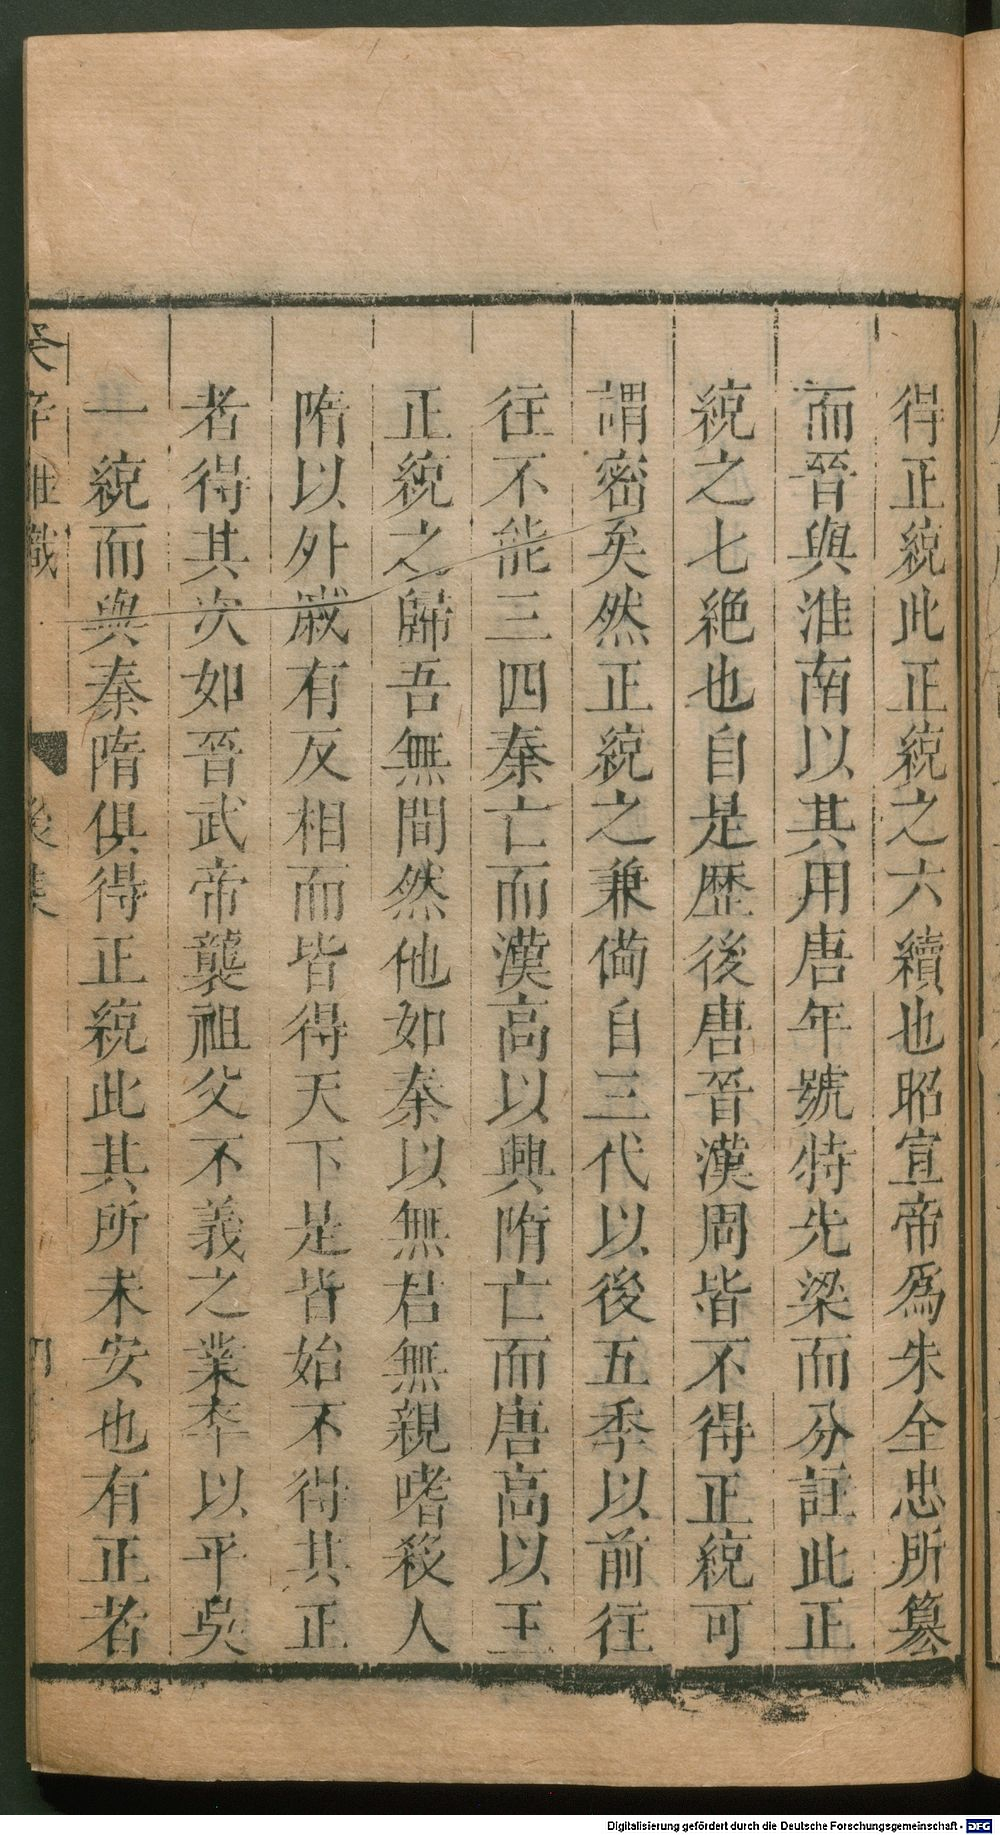 得正統此正統之六續也昭宣帝爲朱全忠所簒
而晉與淮南以其用唐年號特先梁而分註此正
統之七絶也自是歴後唐晉漢周皆不得正統可
謂密矣然正統之兼備自三代以後五季以前往
往不能三四秦亡而漢高以興隋亡而唐高以王
正統之歸吾無間然他如秦以無君無親嗜殺人
隋以外戚有反相而皆得天下是皆始不得其正
者得其次如晉武帝襲祖父不義之業卒以平吳
一統而與秦隋俱得正統此其所未安也有正者
癸辛雜識
後集
Digitalisierung gefördert durch die Deutsche Forschungsgemeinschaft - DFG